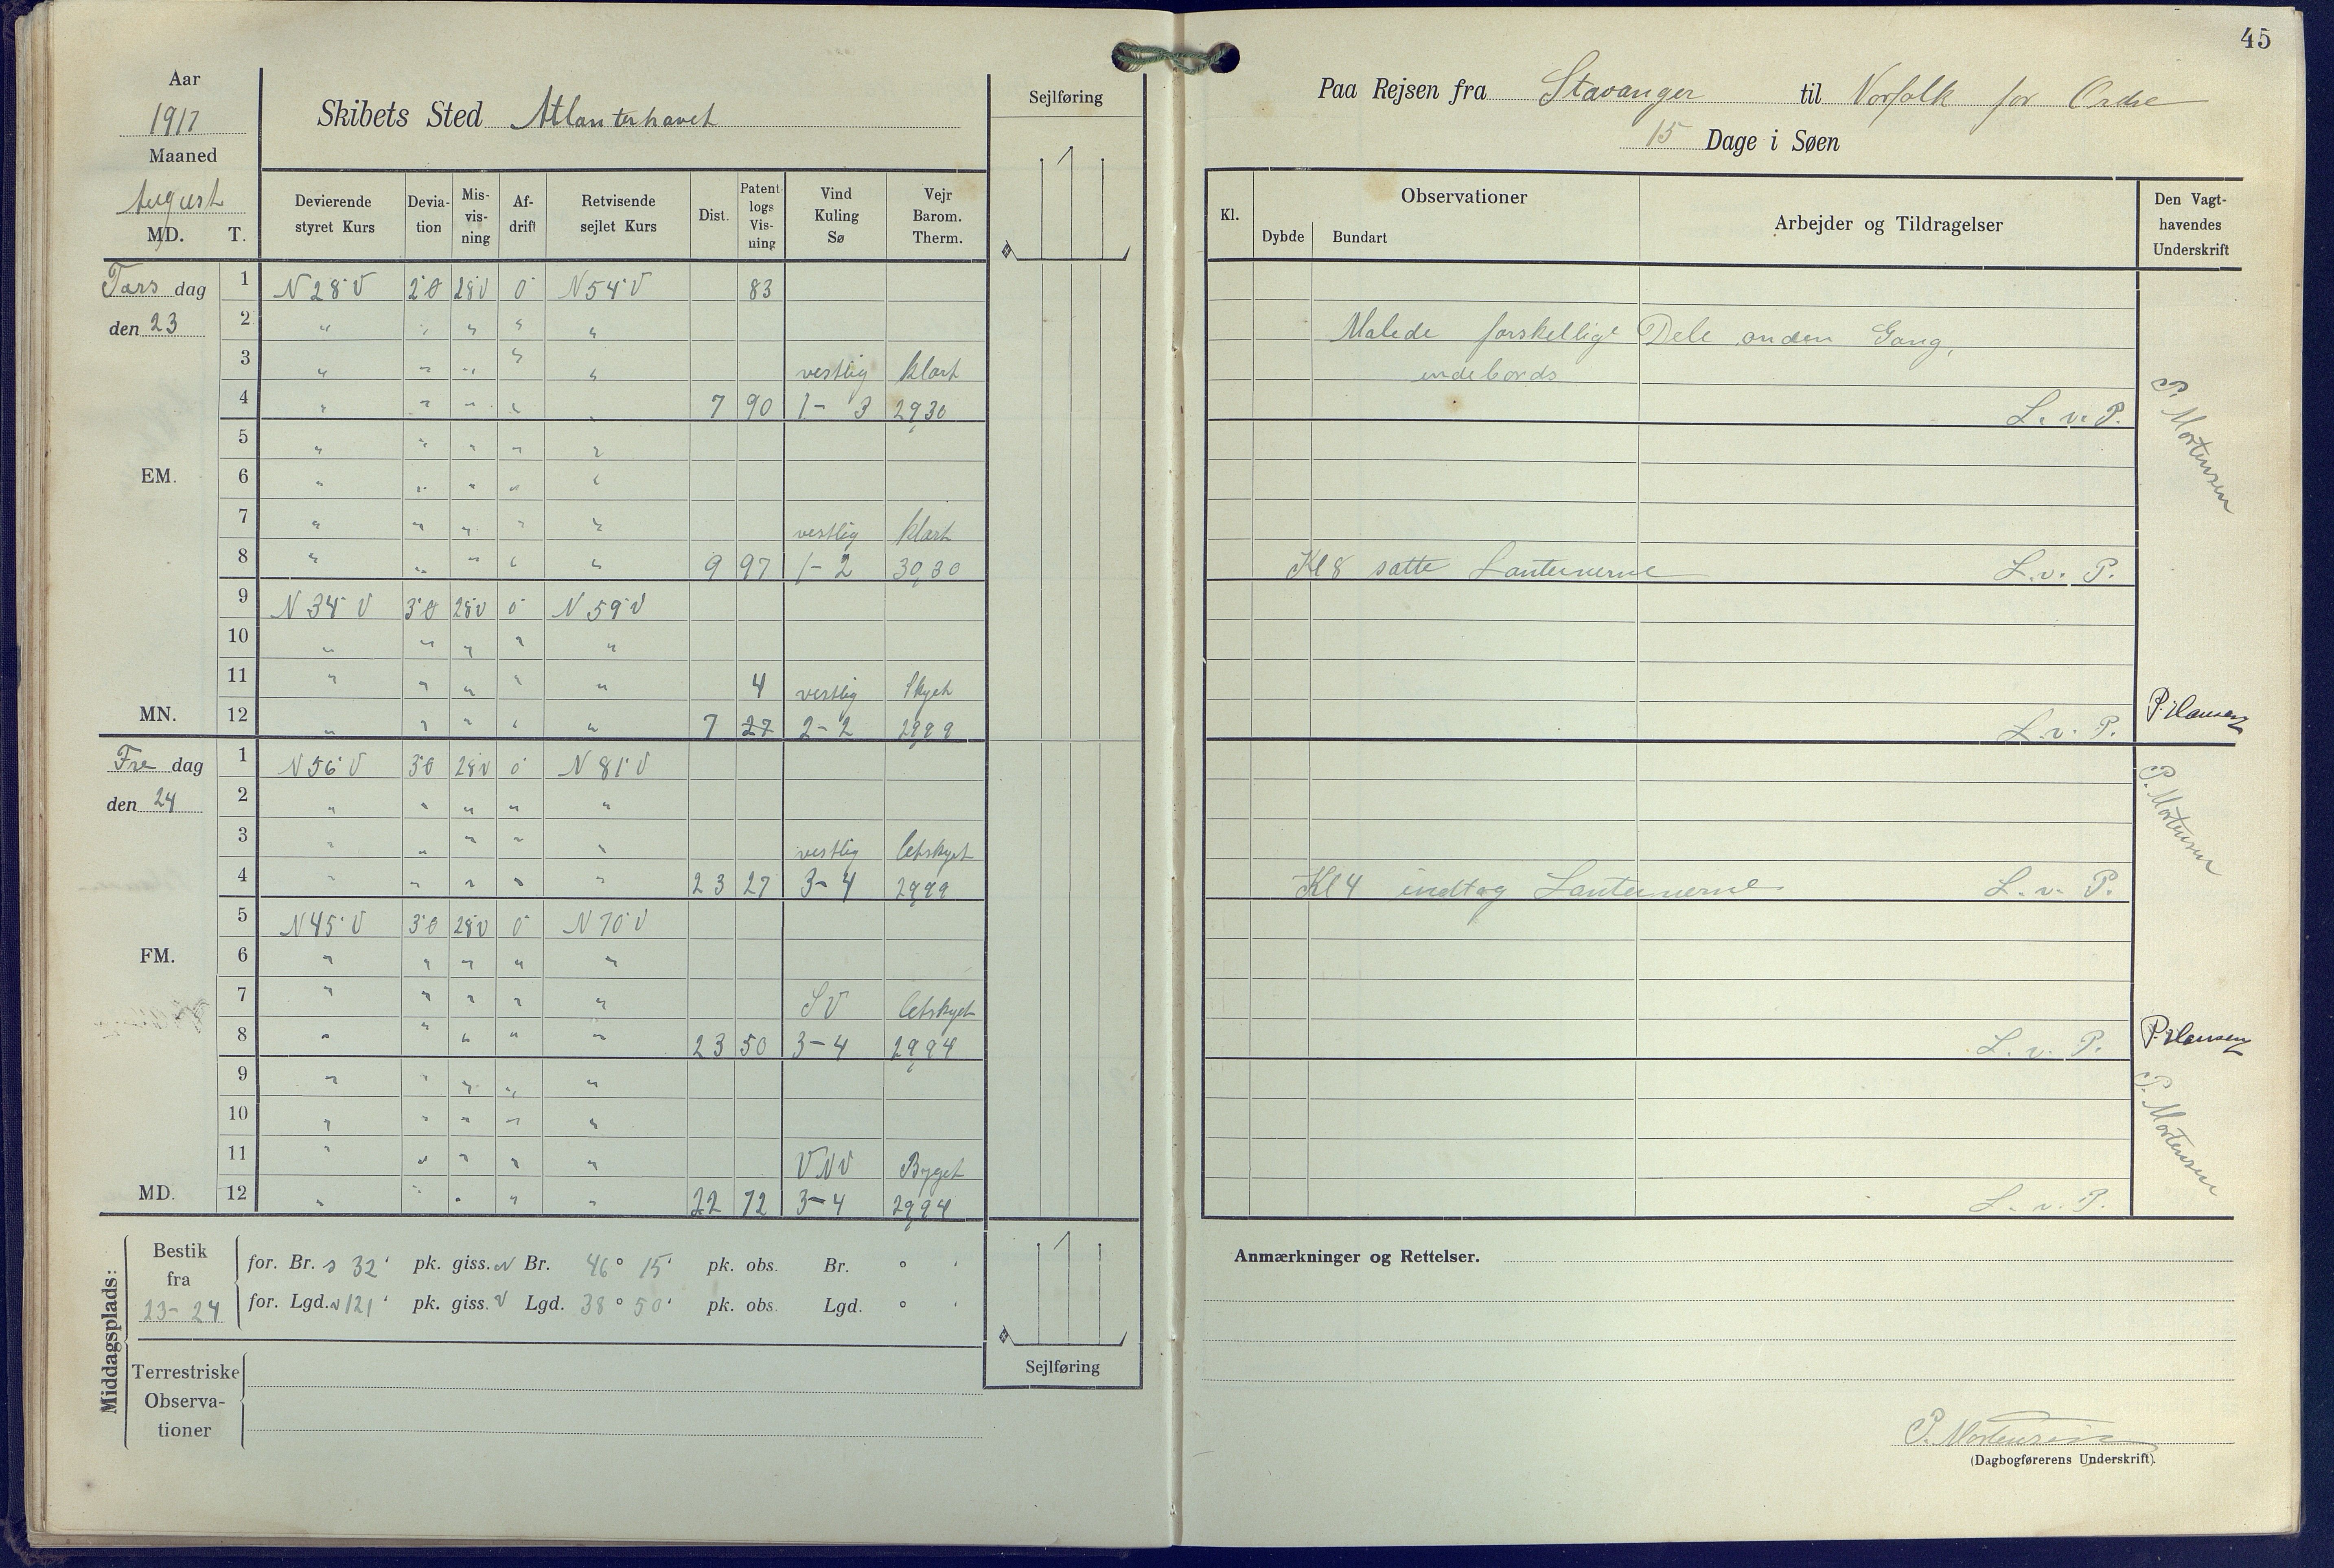 45
Aar
1917
Maaned
August
MD. T.
Skibets Sted Atlanterhavet
Sejlføring
Paa Rejsen fra Stavanger til Norfolk for Ordre
15 Dage i Søen
Devierende styret Kurs | Deviation | Misvisning | Afdrift | Retvisende sejlet Kurs | Dist. | Patentlogs Visning | Vind Kuling Sø | Vejr Barom. Therm.
Kl. | Observationer | Dybde | Bundart | Arbejder og Tildragelser | Den Vagthavendes Underskrift
Tors dag
den 23
1 N 28° V 2°Ø 28V 0° N 54° V 83
2 " " " " "
Malede forskellige Dele anden Gang,
3 " " " " " vestlig klart
indebords
4 " " " " " 7 90 1 - 3 29,30
L. v. P.
P. Mortensen
5 " " " " "
EM.
6 " " " " "
7 " " " " " vestlig klart
8 " " " " " 9 97 1 - 2 30,30
Kl 8 satte Lanternerne L. v. P.
9 N 34° V 3°Ø 28V 0° N 59° V
10 " " " " "
11 " " " " " 4 vestlig Skyet
MN.
12 " " " " " 7 27 2 - 2 29,99
L. v. P.
P. Hansen
Fre dag
den 24
1 N 56° V 3°Ø 28V 0° N 81° V
2 " " " " "
3 " " " " " vestlig letskyet
4 " " " " " 23 27 3 - 4 29,99
Kl 4 indtog Lanternerne L. v. P.
P. Mortensen
5 N 45° V 3°Ø 28V 0° N 70° V
FM.
6 " " " " "
7 " " " " " SV letskyet
8 " " " " " 23 50 3 - 4 29,94
L. v. P.
P. Hansen
9 " " " " "
10 " " " " "
11 " " " " " VNV Byget
MD.
12 " " " " " 22 72 3 - 4 29,94
L. v. P.
P. Mortensen
Middagsplads:
Bestik fra 23 - 24
for. Br. S 32' pk. giss. N Br. 46° 15' pk. obs. Br. ° '
for. Lgd. V 121' pk. giss. V Lgd. 38° 50' pk. obs. Lgd. ° '
Terrestriske Observationer
Sejlføring
Anmærkninger og Rettelser.
P. Mortensen
(Dagbogførerens Underskrift).